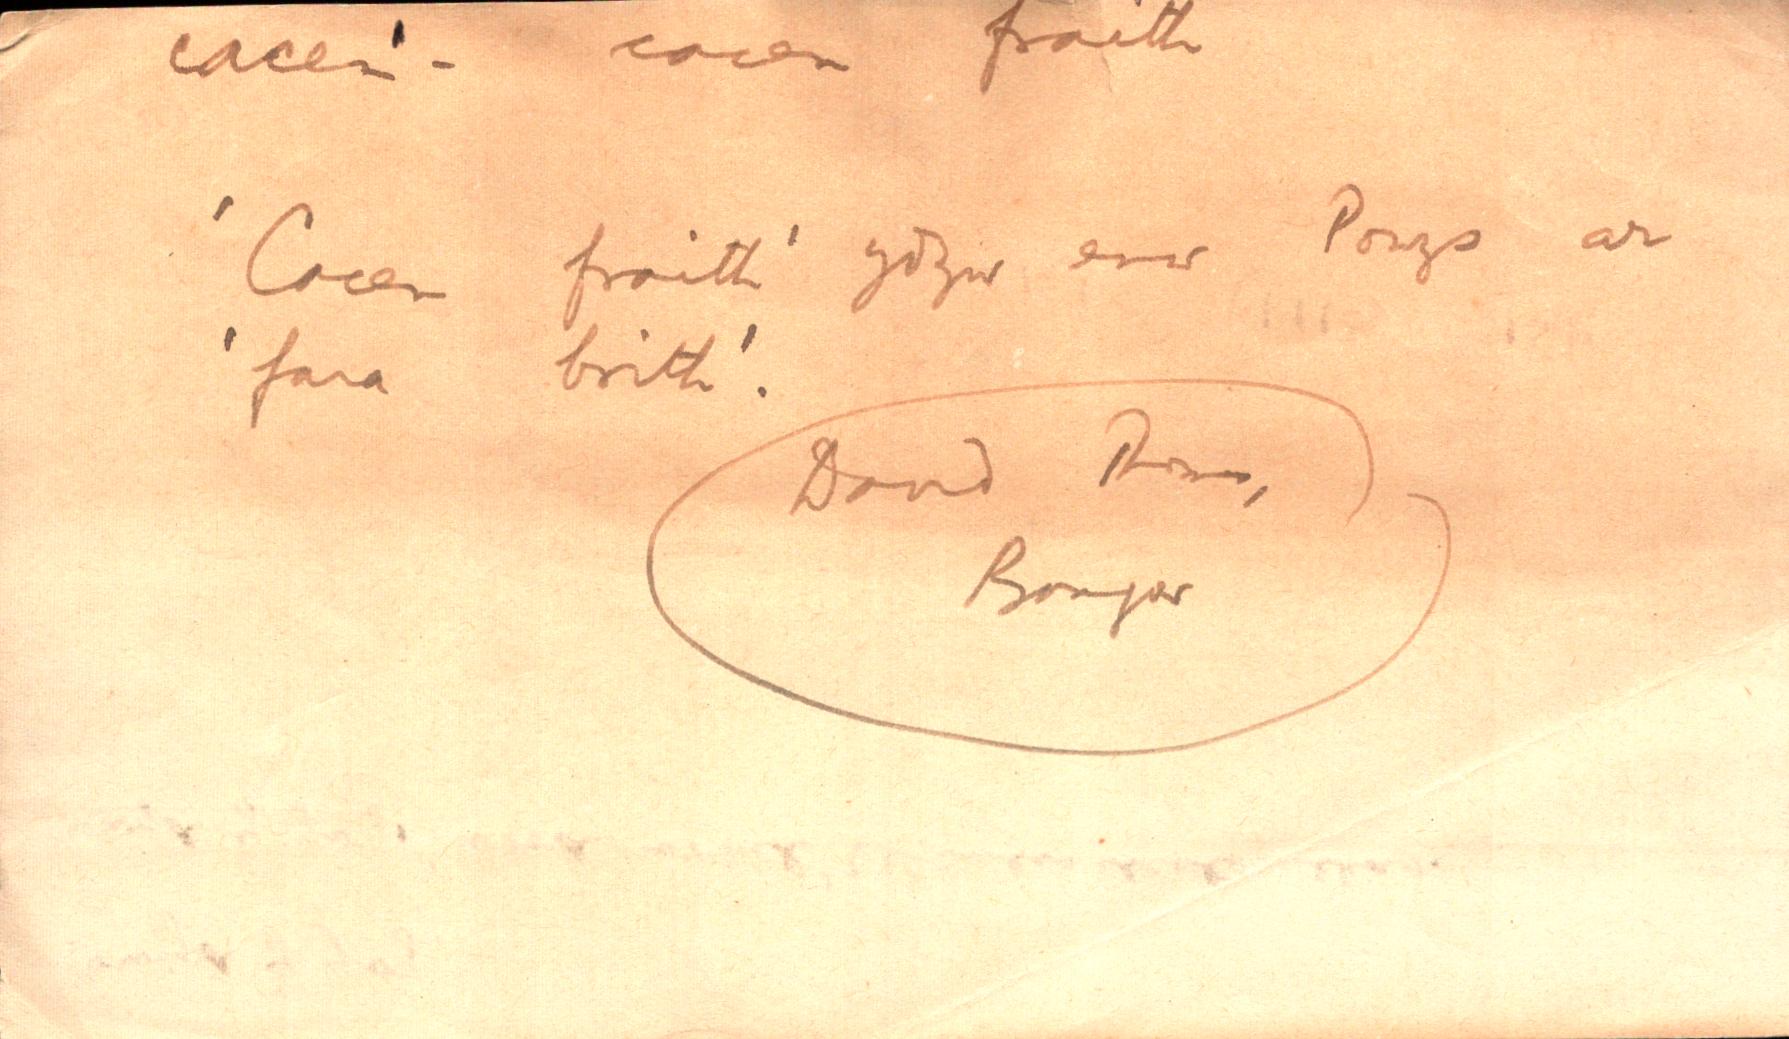 cacen' - cacen fraith
'Cacen fraith' ydyw enw Powys ar
'fara brith'.
David Thomas,
Bangor